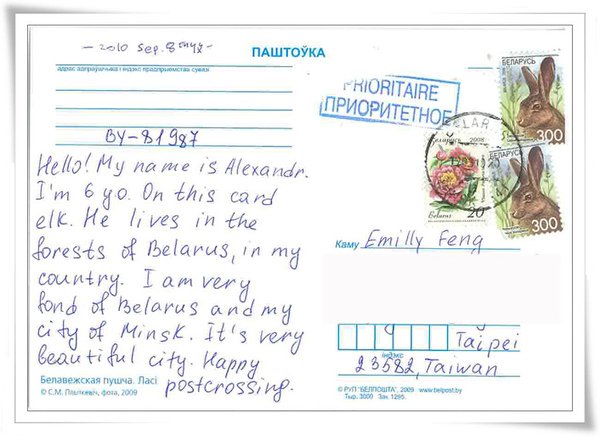 - 2010 Sep. 8
ПАШТОЎКА
адрас адпраўшчыка і індэкс прадпрыемства сувязі
BY-81987
Hello! My name is Alexandr.
I'm 6 y.o. On this card
elk. He lives in the
forests of Belarus, in my
country. I am very
fond of Belarus and my
city of Minsk. It's very
beautiful city. Happy
postcrossing.
Белавежская пушча. Ласі
© С.М. Плыткевіч, фота, 2009
PRIORITAIRE
ПРИОРИТЕТНОЕ
БЕЛАРУСЬ
300
БЕЛАРУСЬ
300
Беларусь 2008
Belarus 20
BELAR
Каму Emilly Feng
Taipei
індэкс
23582, Taiwan
© РУП "БЕЛПОШТА", 2009 www.belpost.by
Тыр. 3000 Зак. 1295.